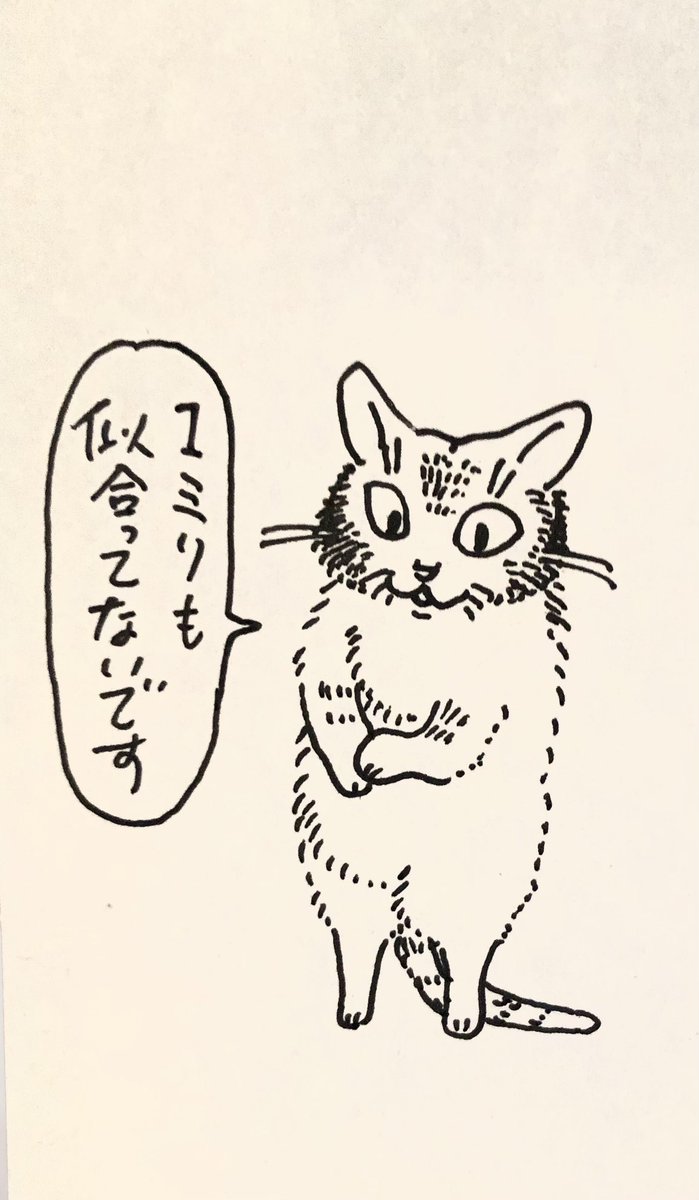 エミリも
似合ってないです